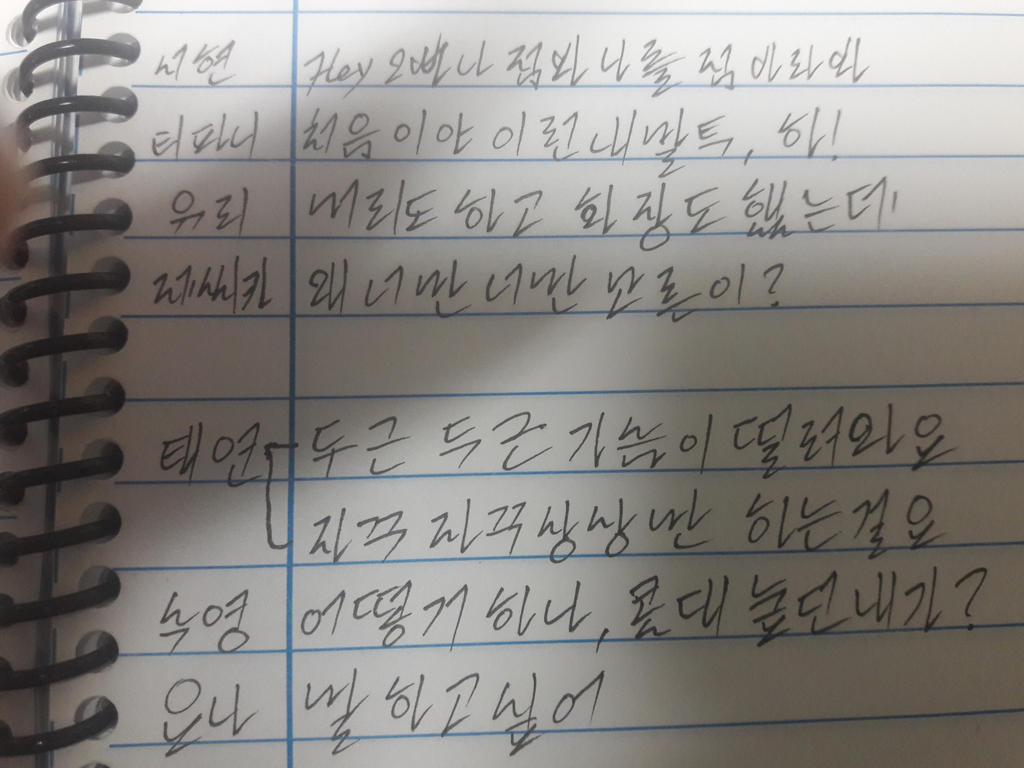 서현 Hey 오빠나 점봐 나를 점 바라봐
티파니 처음이야 이런 내말투, 하!
유리 머리도 하고 화장도 했는데
제씨카 왜 너만 너만 모른이?
태연 두근 두근 가슴이 떨려와요
자꾸 자꾸 상상만 하는걸요
수영 어떻게 하나, 콧대 높던 내가?
윤나 말 하고 싶어